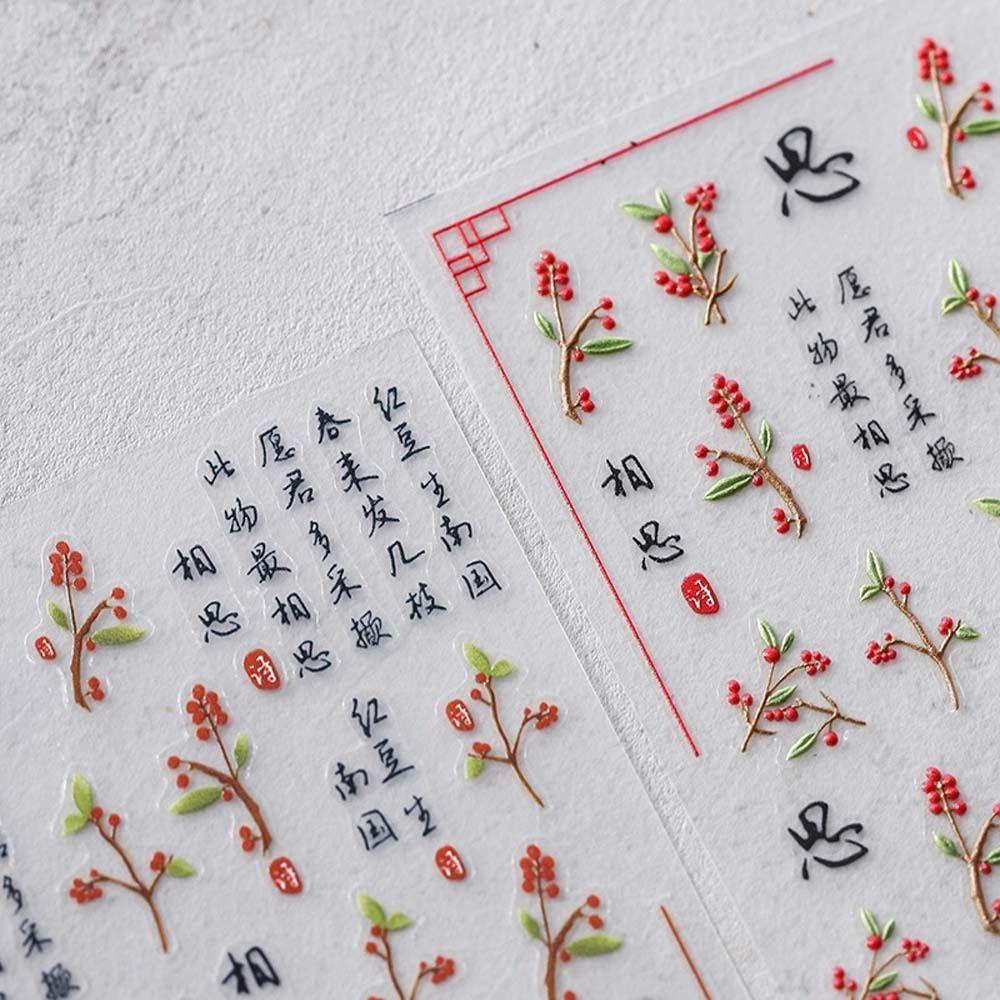 红豆生南国
春来发几枝
愿君多采撷
此物最相思
相思
诗
诗
红豆生
南国
诗
诗
多采撷
相
思
愿君多采撷
此物最相思
诗
相思
诗
思